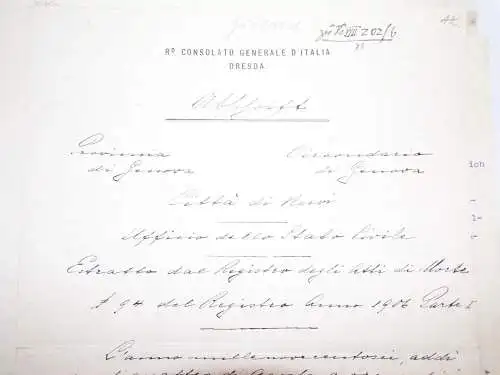 44
R° CONSOLATO GENERALE D'ITALIA
DRESDA.
Abschrift
Provincia di Genova
Circondario di Genova
Città di Nervi
Ufficio dello Stato Civile
Estratto dal Registro degli Atti di Morte
№ 94 del Registro Anno 1906 Parte I
L'anno millenovecentosei, addì
ich